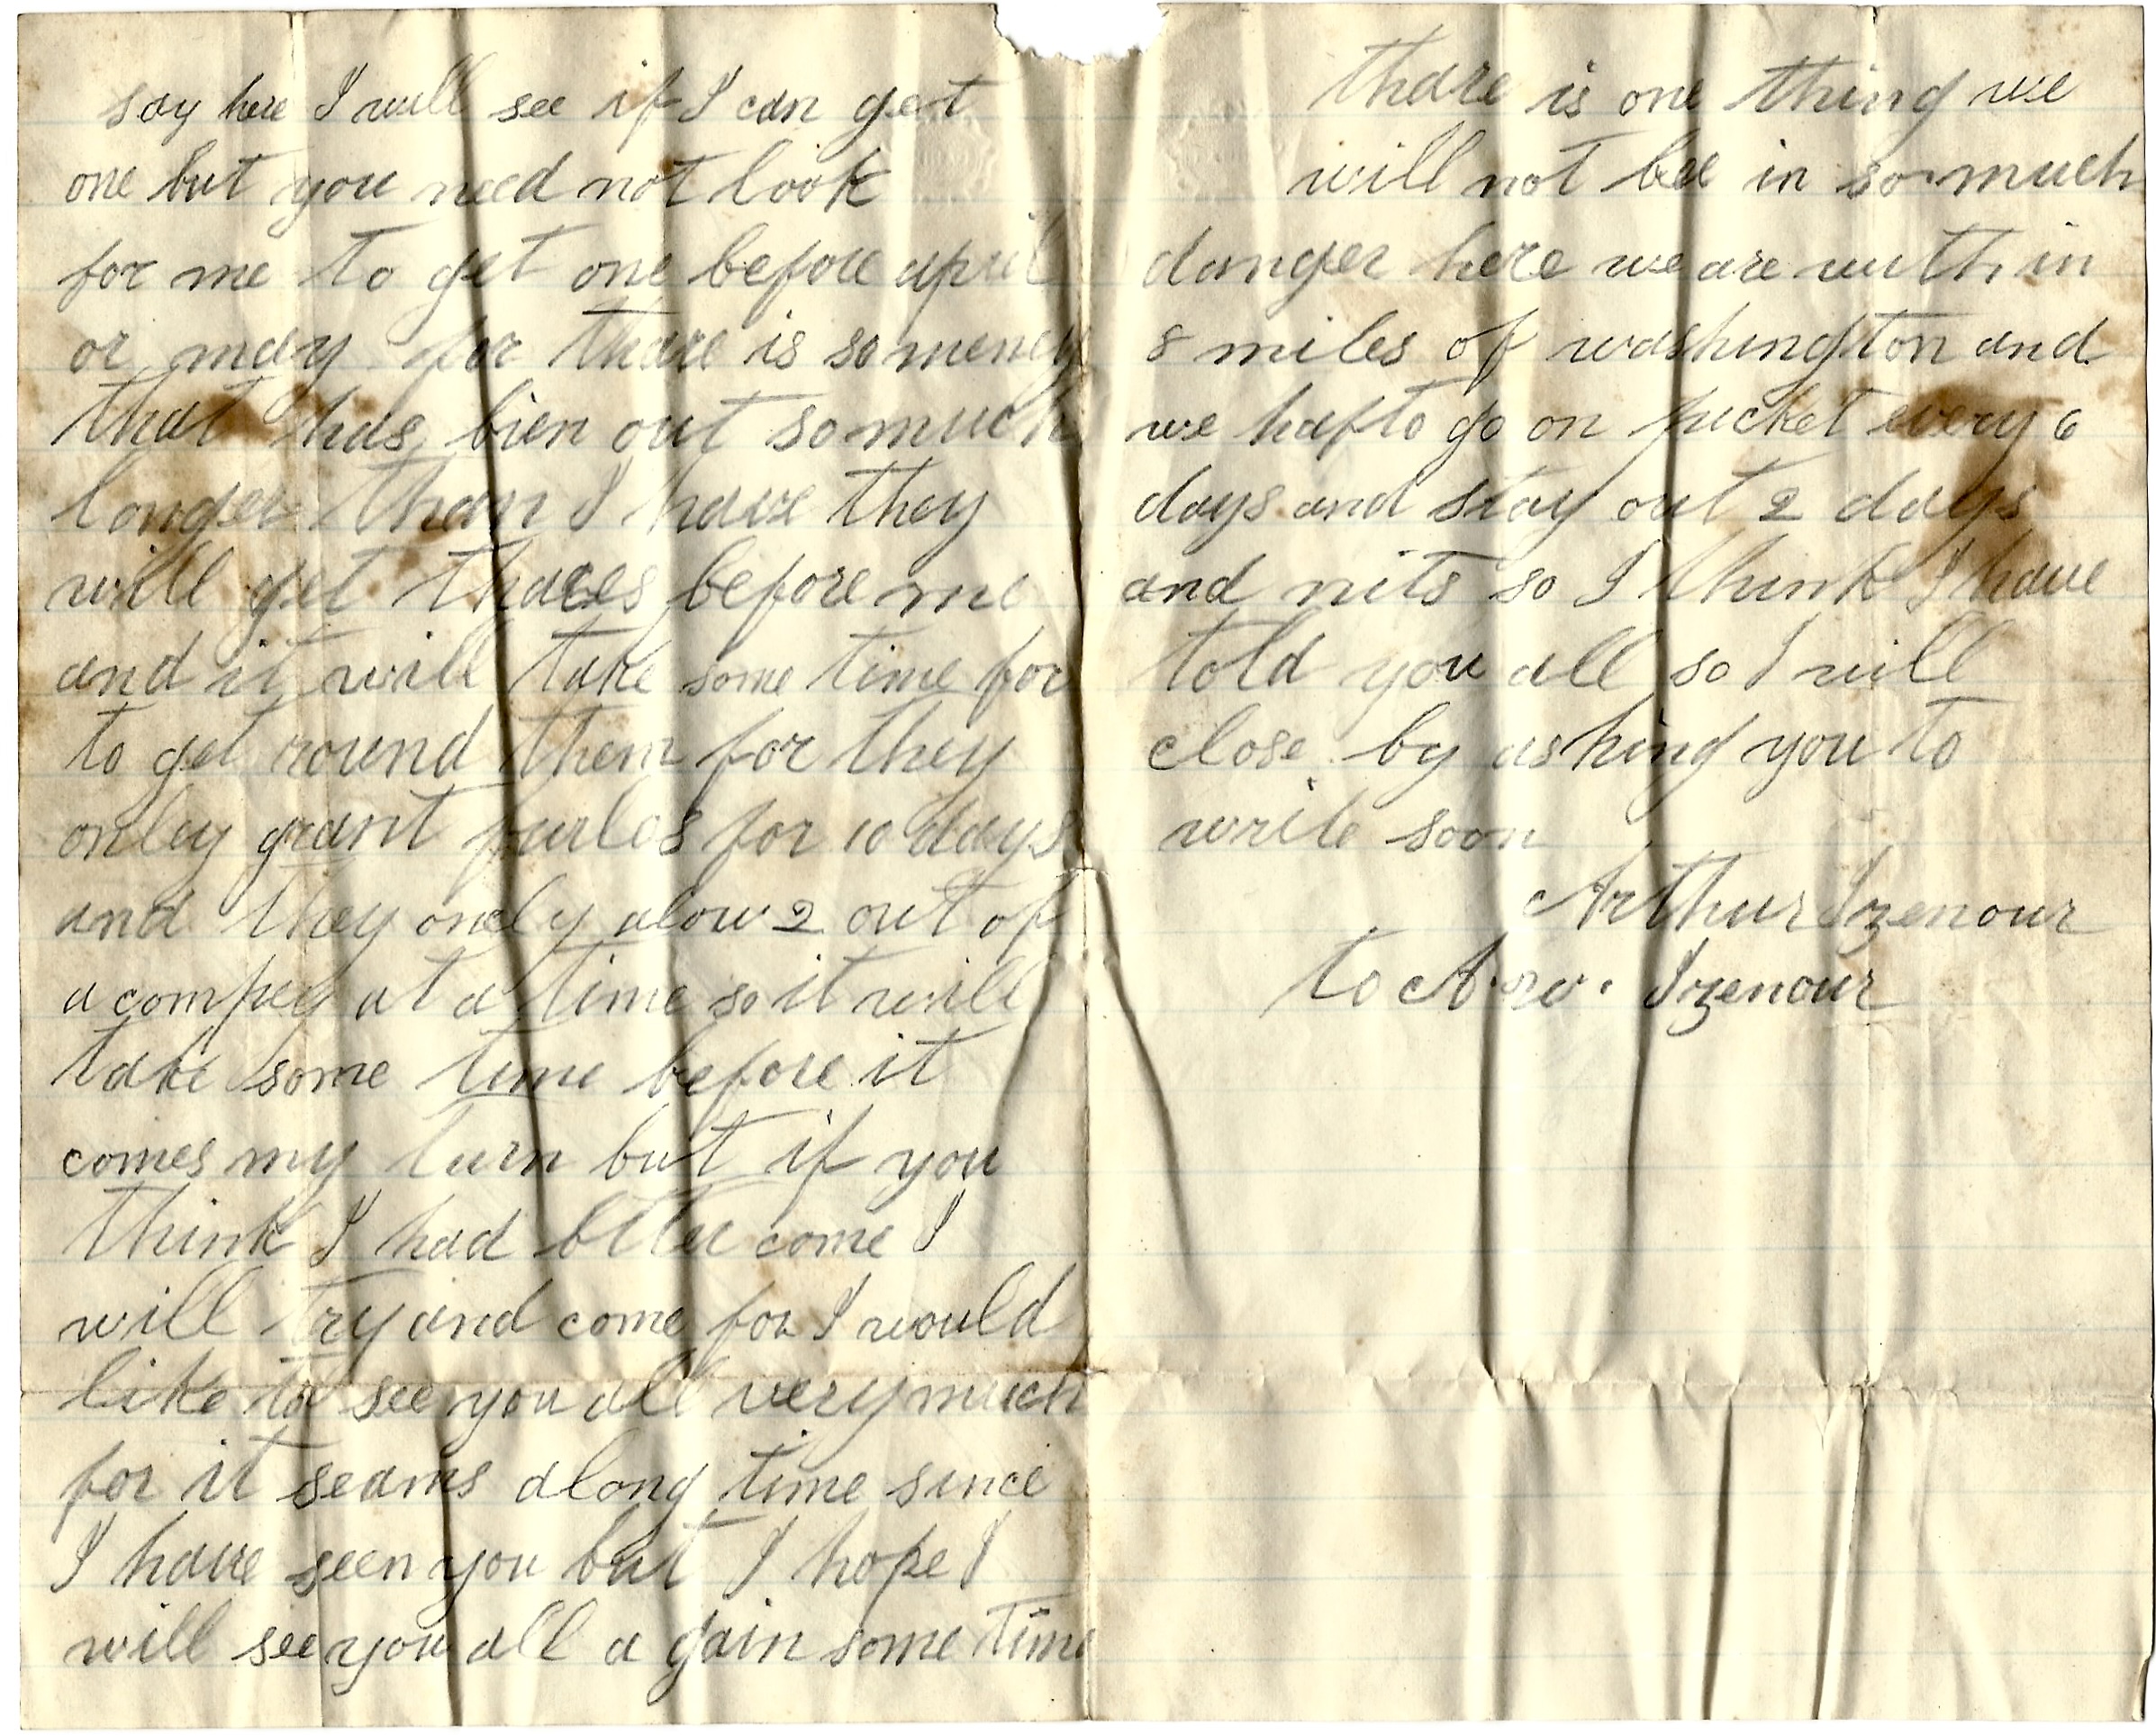 say here I will see if I can get
one but you need not look
for me to get one before april
or may for thare is so meney
that has bien out so much
longer than I have they
will get thares before me
and it will take some time for
to get round them for they
onley grant furlos for 10 days
and they onely alow 2 out of
a compey at a time so it will
take some time before it
comes my turn but if you
think I had btter come I
will try and come for I would
like to see you all very much
for it seams along time since
I have seen you but I hope I
will see you all a gain some time
thare is one thing we
will not bee in so much
danger here we are with in
8 miles of washington and
we hafto go on picket every 6
days and stay out 2 days
and nits so I think I have
told you all so I will
close by asking you to
write soon
Arthur Izenour
to A. w. Izenour